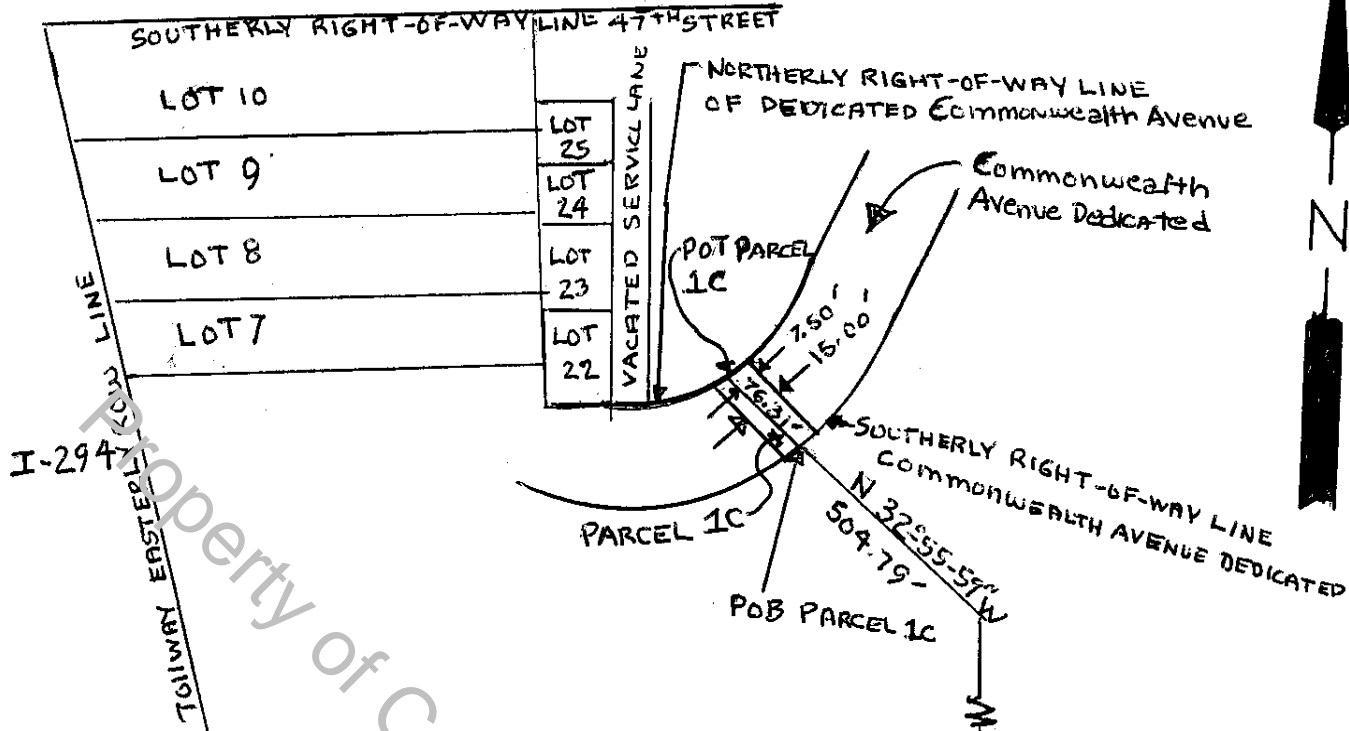 SOUTHERLY RIGHT-OF-WAY LINE 47TH STREET
LOT 10
LOT 9
LOT 8
LOT 7
LOT
25
LOT
24
LOT
23
LOT
22
VACATED SERVICE LANE
NORTHERLY RIGHT-OF-WAY LINE
OF DEDICATED Commonwealth Avenue
Commonwealth
Avenue Dedicated
N
POT PARCEL
1C
7.50'
15.00'
76.31'
SOUTHERLY RIGHT-OF-WAY LINE
COMMONWEALTH AVENUE DEDICATED
PARCEL 1C
N 32-55-59" W
504.79-
POB PARCEL 1C
I-294
TOllWAY EASTERLY ROW LINE
Property of C